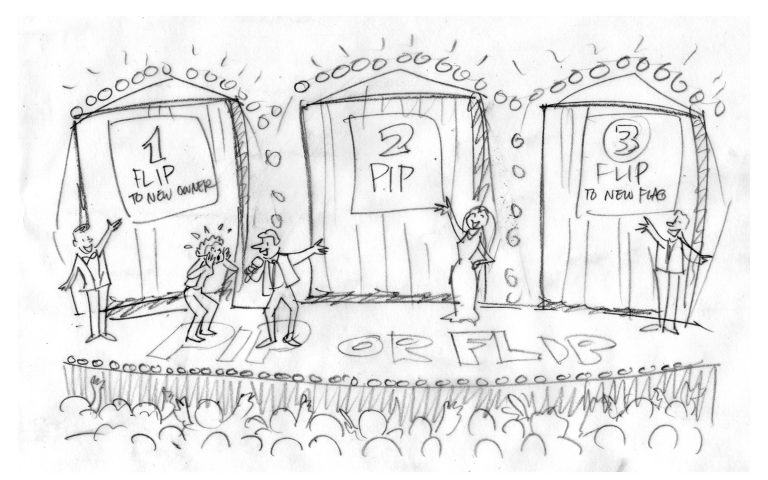 1
FLIP
TO NEW OWNER
2
P.I.P
3
FLIP
TO NEW FLAG
PIP OR FLIP